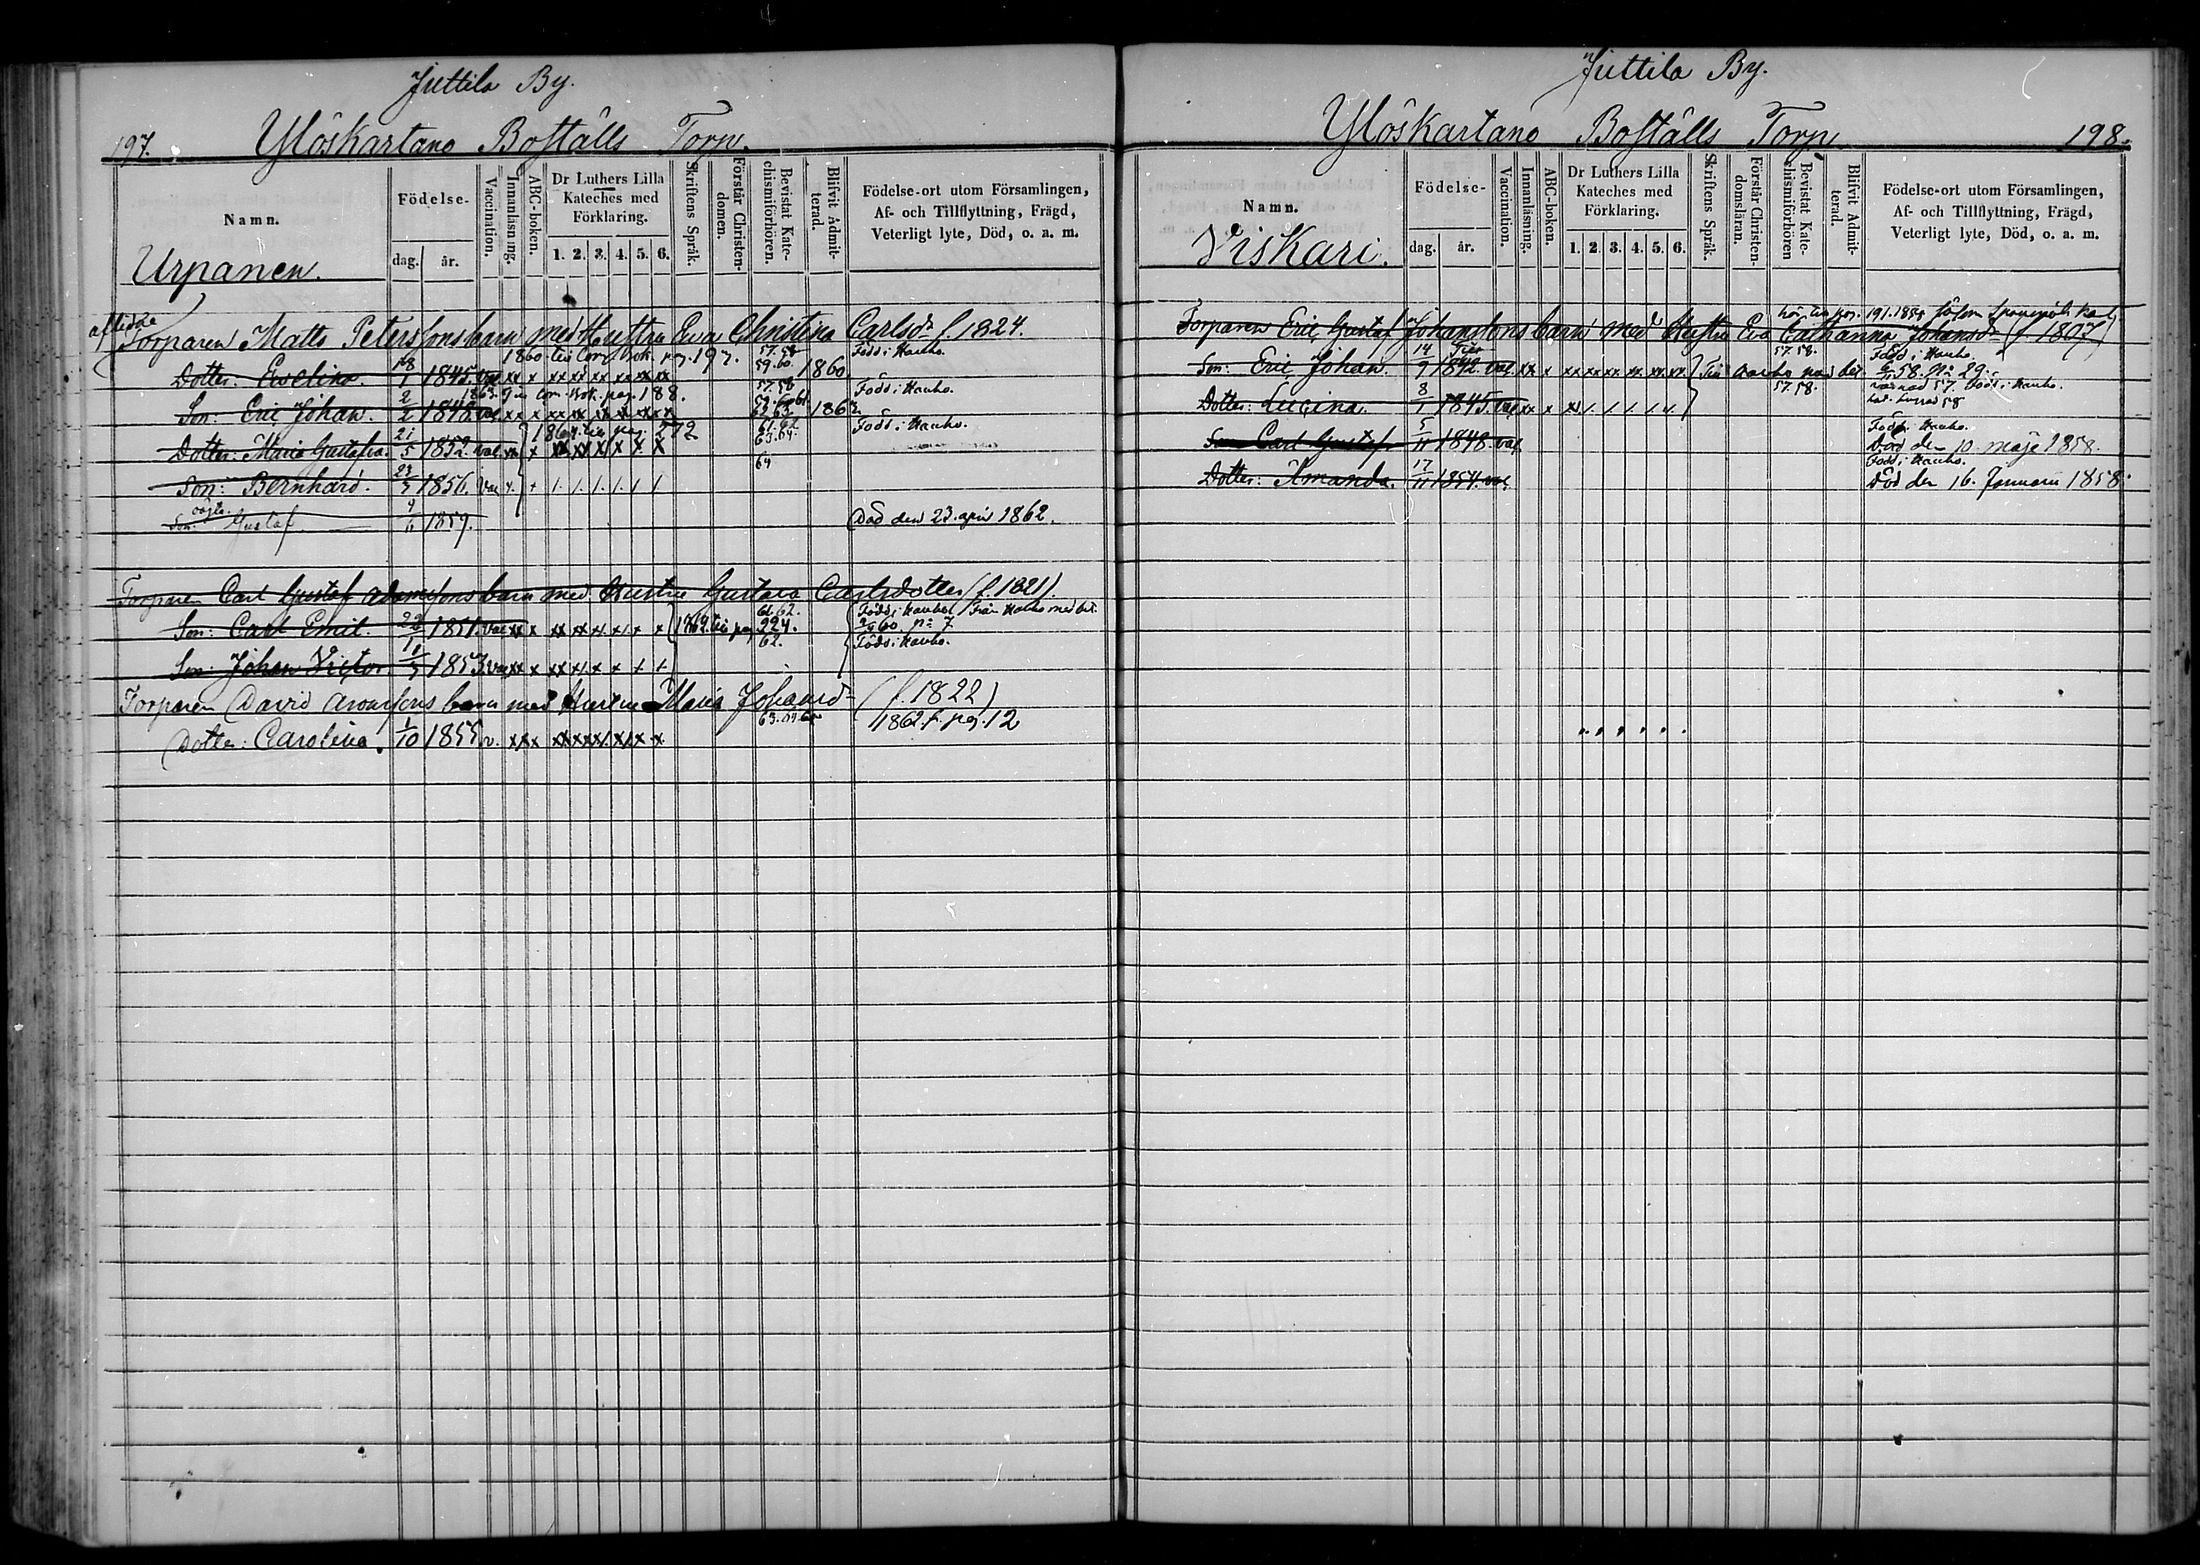 Juttila By.
197. Ylöskartano Boställs Torp.
Namn.
Födelse-
dag. år.
Vaccination.
Innanläsning.
ABC-boken.
Dr Luthers Lilla Kateches med Förklaring.
1. 2. 3. 4. 5. 6.
Skriftens Språk.
Förstår Christendomen.
Bevistat Katechismiförhören.
Blifvit Admitterad.
Födelse-ort utom Församlingen,
Af- och Tillflyttning, Frägd,
Veterligt lyte, Död, o. a. m.
Urpanen.
aflidne
Torparen Matts Peterssons barn med Hustru Eva Christina Carlsdr f. 1824.
1860 till Com. bok. pag. 197. 57.58 Född i Hauho.
Dotter: Evelina. 18/1 1845. vac xx x xx xx xx xx xx xx 59.60. 1860.
1863. Com. Bok. pag. 188. 57.58 Född i Hauho.
Son: Eric Johan. 2/2 1848. vac xx x xx xx xx xx xx xx 62.63. 1863.
1864. till pag. 272 61.62 Född i Hauho.
Dotter: Maria Gustafva. 21/5 1852. vac xx x xx xx x x x x 63.64.
Son: Bernhard. 23/5 1856. vac x. + /. /. /. /. / / 64
Son: Gustaf 4/6 1859. Död den 23. april 1862.
Torparen Carl Gustaf Adamssons barn med Hustru Gustava Carlsdotter (f. 1821).
61.62. Född i Hauho. Från Hauho med bet.
Son: Carl Emil. 22/1 1851. vac xx x xx xx x x x 1864. till pag. 224. 60 No 7
62. Född i Hauho.
Son: Johan Victor. 10/5 1853. vac xx x xx x x x + +
Torparen David Aronssons barn med Hustru Maria Johansd- (f. 1822)
63.64. 1862. f. pag. 12
Dotter: Carolina. 1/10 1855. v. xx x xx xx x x x
Juttila By.
Ylöskartano Boställs Torp. 198.
Namn.
Födelse-
dag. år.
Vaccination.
Innanläsning.
ABC-boken.
Dr Luthers Lilla Kateches med Förklaring.
1. 2. 3. 4. 5. 6.
Skriftens Språk.
Förstår Christendomsläran.
Bevistat Katechismiförhören
Blifvit Admitterad.
Födelse-ort utom Församlingen,
Af- och Tillflyttning, Frägd,
Veterligt lyte, Död, o. a. m.
Viskari.
pag. 191.
Torparens Eric Gustaf Johanssons barn med Hustru Eva Catharina Johansd- (f. 1807)
57.58. Född i Hauho.
Son: Eric Johan. 14/9 1842. vac. xx x xx xx xx xx xx xx Till Hauho med bet. 58. No 29.
57.58. Född i Hauho.
Dotter: Lucina. 8/1 1845. vac xx x xx /. /. /. /. /.
Född i Hauho.
Son: Carl Gustaf. 5/11 1848. vac Död den 10. maji 1858.
Född i Hauho.
Dotter: Amanda. 17/11 1854. vac Död den 16. Januarii 1858.